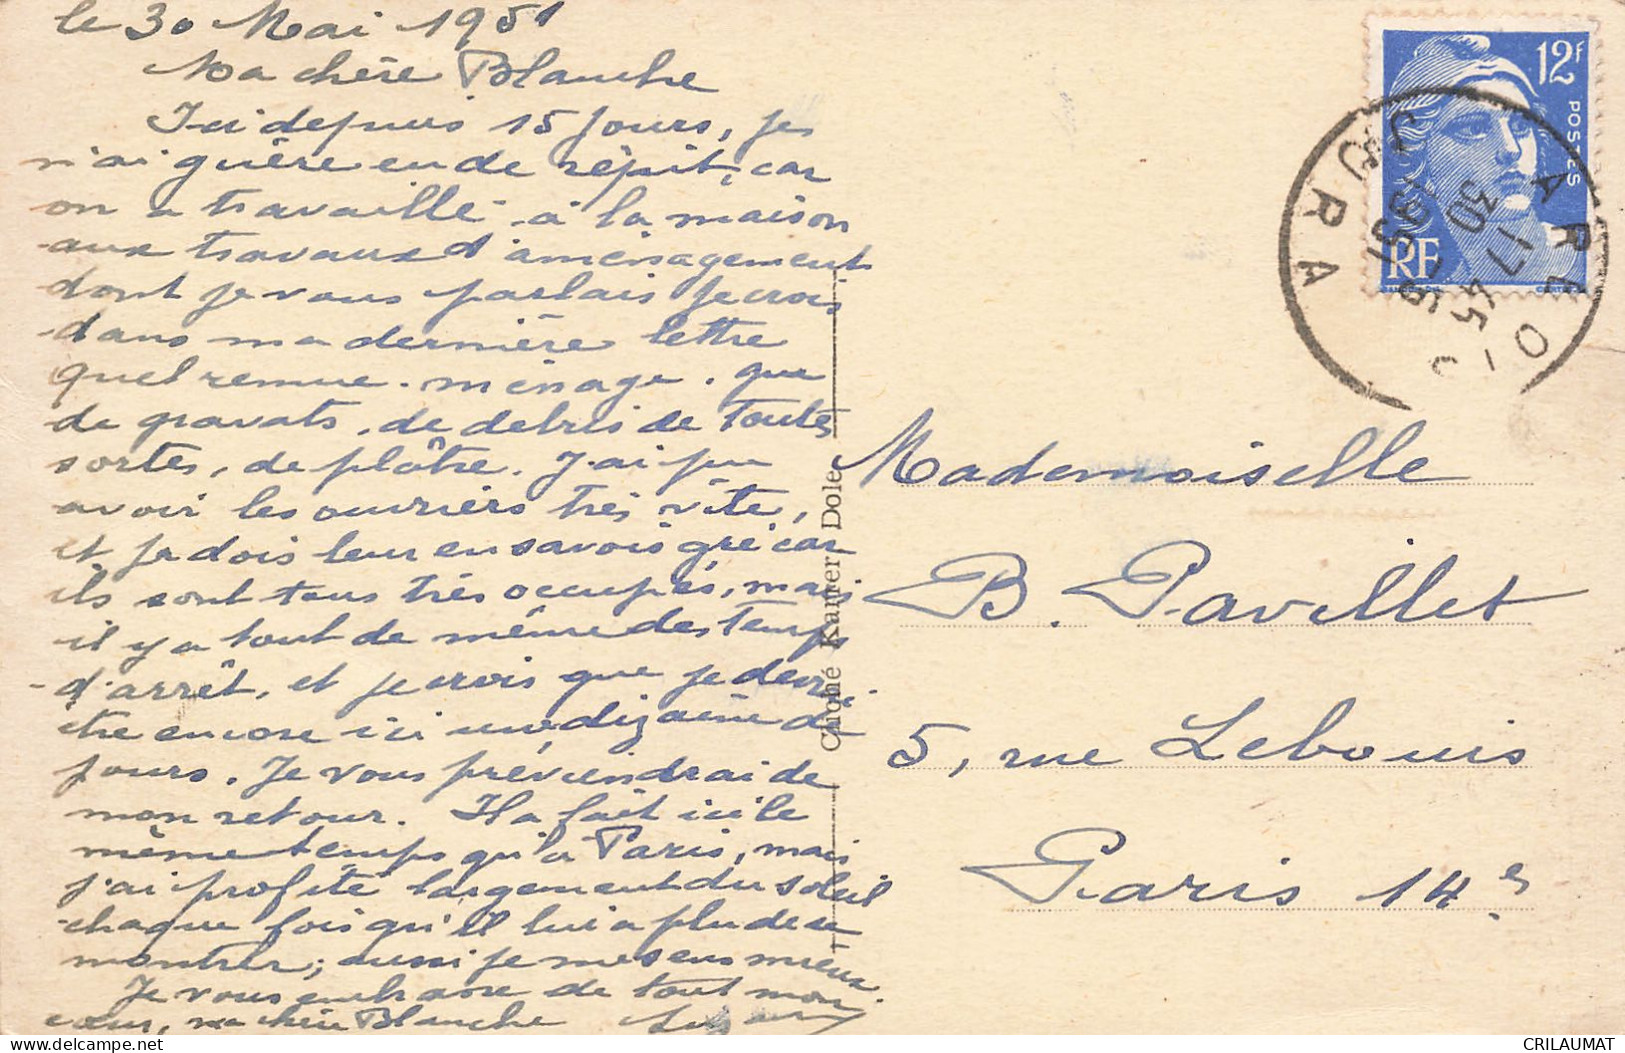 le 30 Mai 1951
Ma chère Blanche
Ici depuis 15 jours, je
n'ai guère eu de répit, car
on a travaillé à la maison
aux travaux d'aménagement
dont je vous parlais je crois
dans ma dernière lettre
quel remue-ménage, que
de gravats, de débris de toutes
sortes, de plâtre. J'ai pu
avoir les ouvriers très vite,
et je dois leur en savoir gré car
ils sont tous très occupés, mais
il y a tout de même des temps
d'arrêt, et je crois que je devrai
être encore ici une dizaine de
jours. Je vous préviendrai de
mon retour. Il a fait ici le
même temps qu'à Paris, mais
j'ai profité largement du soleil
chaque fois qu'il lui a plu de se
montrer; aussi je me sens mieux.
Je vous embrasse de tout mon
cœur, ma chère Blanche
Cliché Karrer Dole
12F
POSTES
RF
ARBOIS
30 -17 45
1951
JURA
Mademoiselle
B. Pavillet
5, rue Lebouis
Paris 14e
delcampe.net
CRILAUMAT